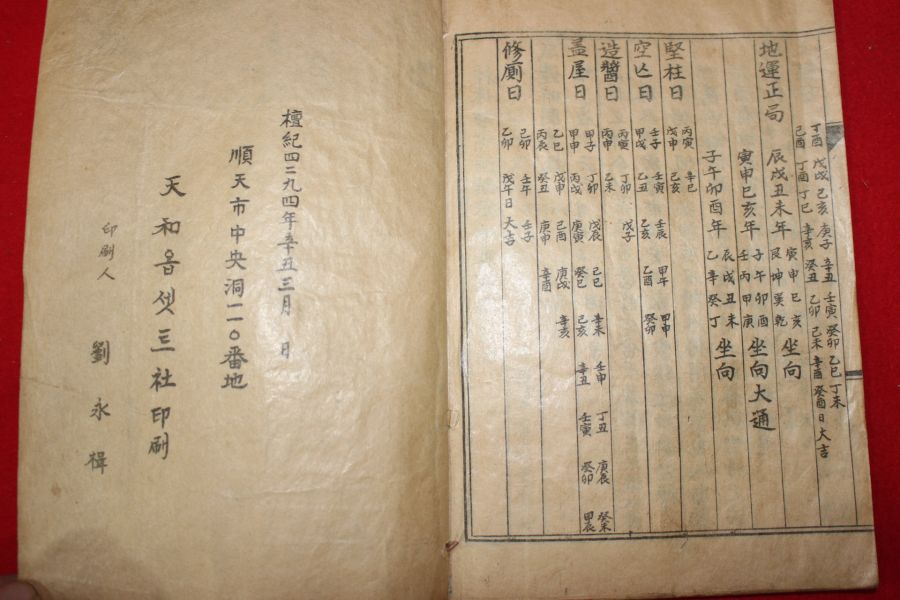 丁酉 戊戌 己亥 庚子 辛丑 壬寅 癸卯 乙巳 丁未
己酉 丁酉 丁巳 辛亥 癸丑 乙卯 己未 辛酉 癸酉日大吉
地運正局 辰戌丑未年 寅申巳亥 艮坤巽乾 坐向
寅申巳亥年 子午卯酉 壬丙甲庚 坐向大通
子午卯酉年 辰戌丑未 乙辛癸丁 坐向
堅柱日 丙寅 辛巳
戊申 己亥
空亡日 壬子 壬寅 壬辰 甲午 甲申
甲戌 乙丑 乙亥 乙酉 癸卯
造醬日 丙寅 丁卯 戊子
丙申 乙未
盖屋日 甲子 丁卯 戊辰 己巳 辛未 壬申 丁丑 庚辰 癸未
甲申 丙戌 庚寅 癸巳 己亥 辛丑 壬寅 癸卯 甲辰
乙巳 戊申 己酉 庚戌 辛亥
丙辰 癸丑 庚申 辛酉
修厠日 己卯 壬午 壬子
乙卯 戊午日大吉
檀紀四二九四年辛丑三月 日
順天市中央洞一一○番地
天和옵셋三社印刷
印刷人 劉永楫